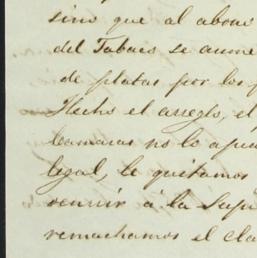 sino que al abono
del Tabaco se aume
de platas por los p
Hecho el arreglo, el
camaras no lo apua
legal, le quitamos
reunir á la Sup
remachamos el cla